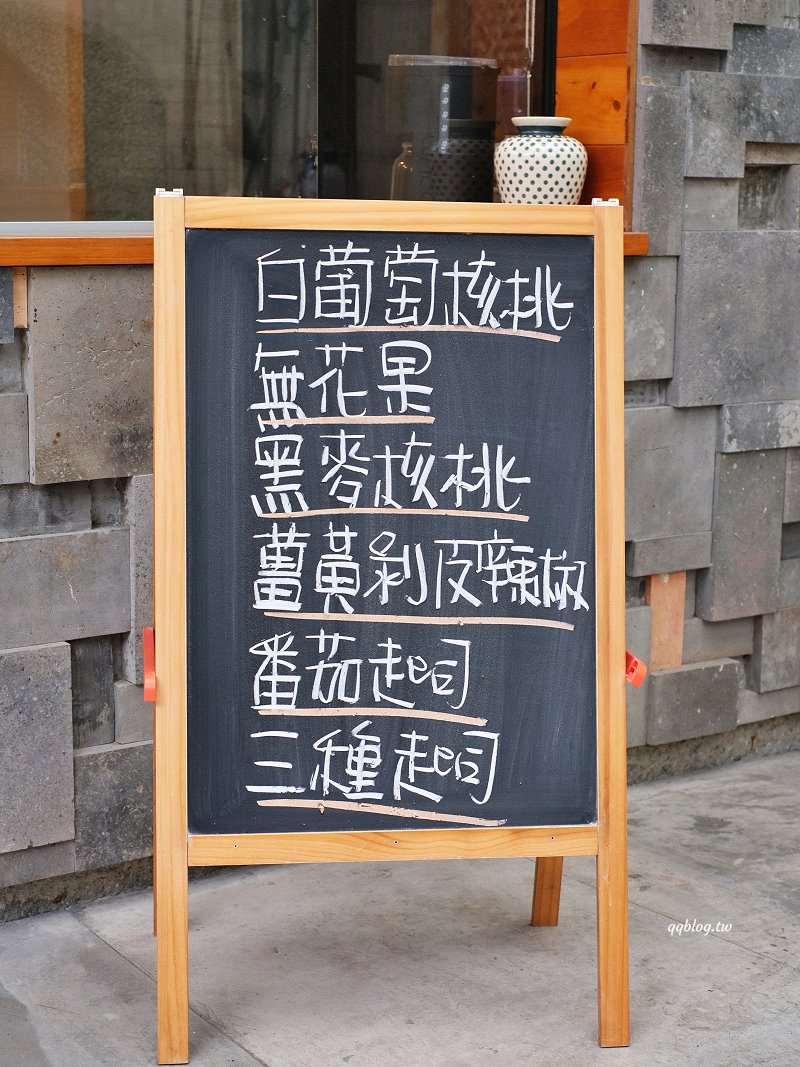 白葡萄核桃
無花果
黑麥核桃
薑黃剝皮辣椒
番茄起司
三種起司
qqblog.tw